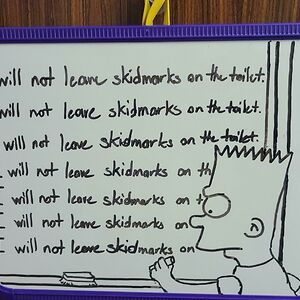 will not leave skidmarks on the toilet.
will not leave skidmarks on the toilet.
will not leave skidmarks on the toilet.
will not leave skidmarks on th
will not leave skidmarks on t
will not leave skidmarks on
will not leave skidmarks on